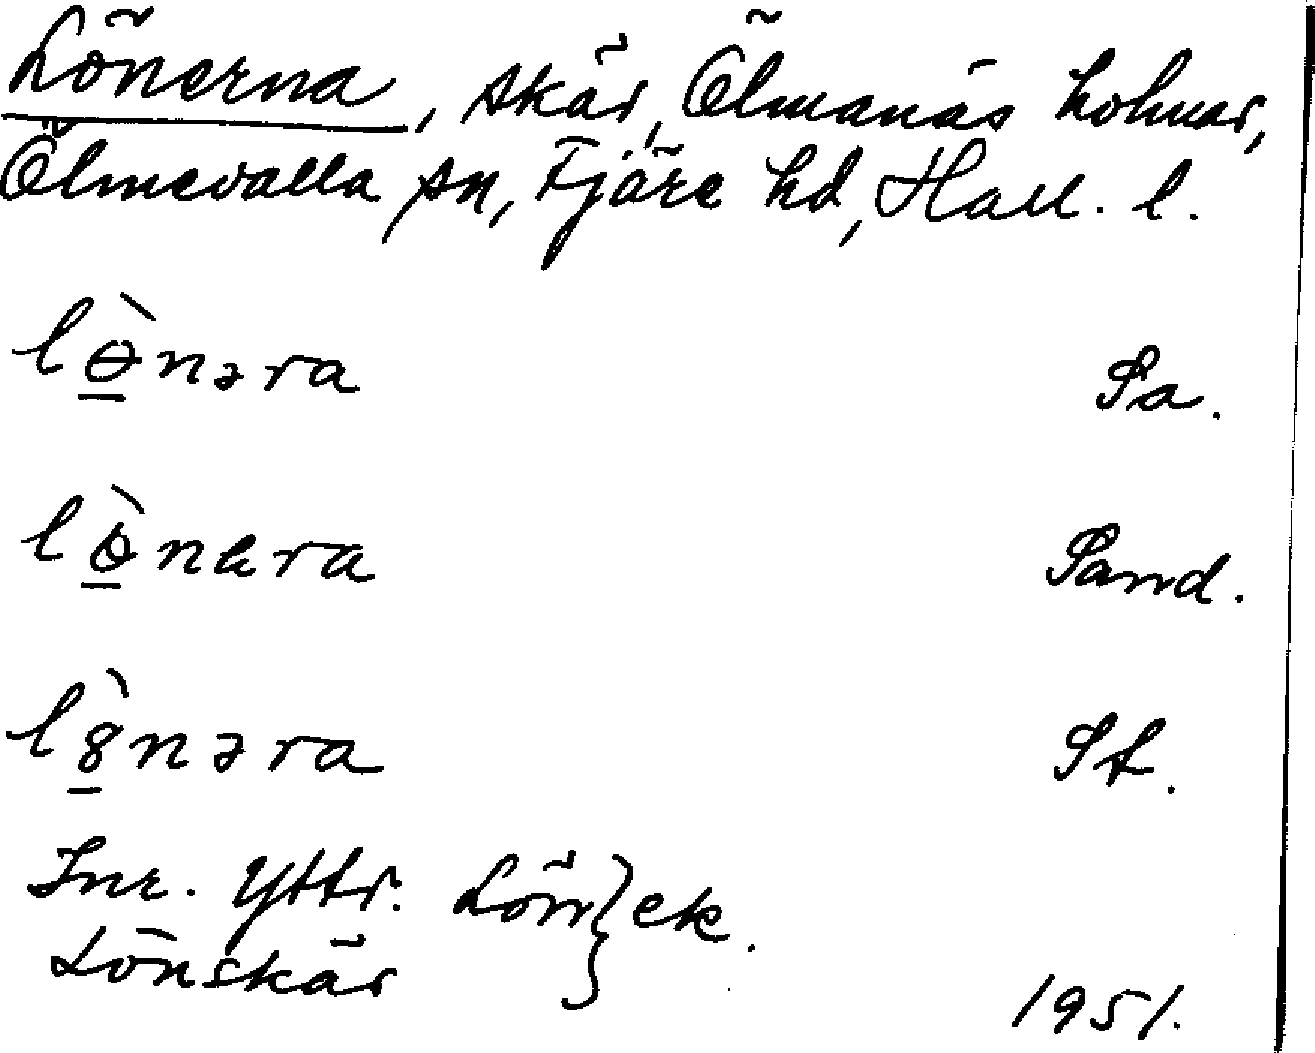 Lönerna, skär, Ölmanäs holmar,
Ölmevalla sn, Fjäre hd, Hall. l.
lɵ̀nəra Sa.
lò̱nera Sand.
l8̱̀nəra St.
Inr. Yttr. Lön } ek.
Lönskär
1951.